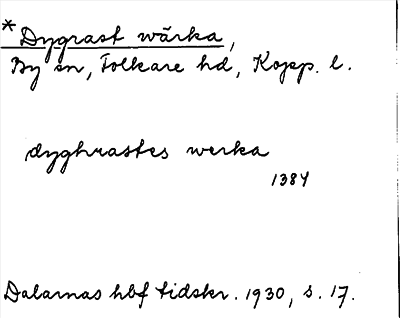 *Dygrast wärka,
By sn, Folkare hd, Kopp. l.
dyghrastes werka
1384
Dalarnas hbf tidskr. 1930, s. 17.